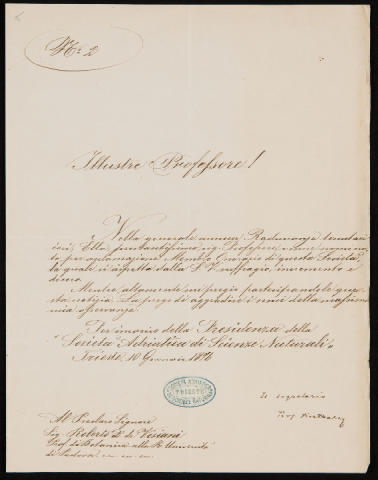 N.º 2
Illustre Professore!
Nella generale annua Radunanza tenutasi
Ella, prestantissimo sig. Professore, venne nomina-
to per acclamazione Membro Onorario di questa Società,
la quale si aspetta dalla S. V. suffragio, incremento e
decoro.
Mentre altamente mi pregio partecipandole que-
sta notizia, La prego di aggradire i sensi della massi-
ma speranza.
Per incarico della Presidenza della
"Società Adriatica di Scienze Naturali"
Trieste, 10 Gennaio 1876
SOCIETÀ ADRIATICA
TRIESTE
DI SCIENZE NATURALI
Il Segretario
Prof.
Al Preclaro Signore
Sig. Roberto de Visiani
Prof. di Botanica alla R. Università
di Padova